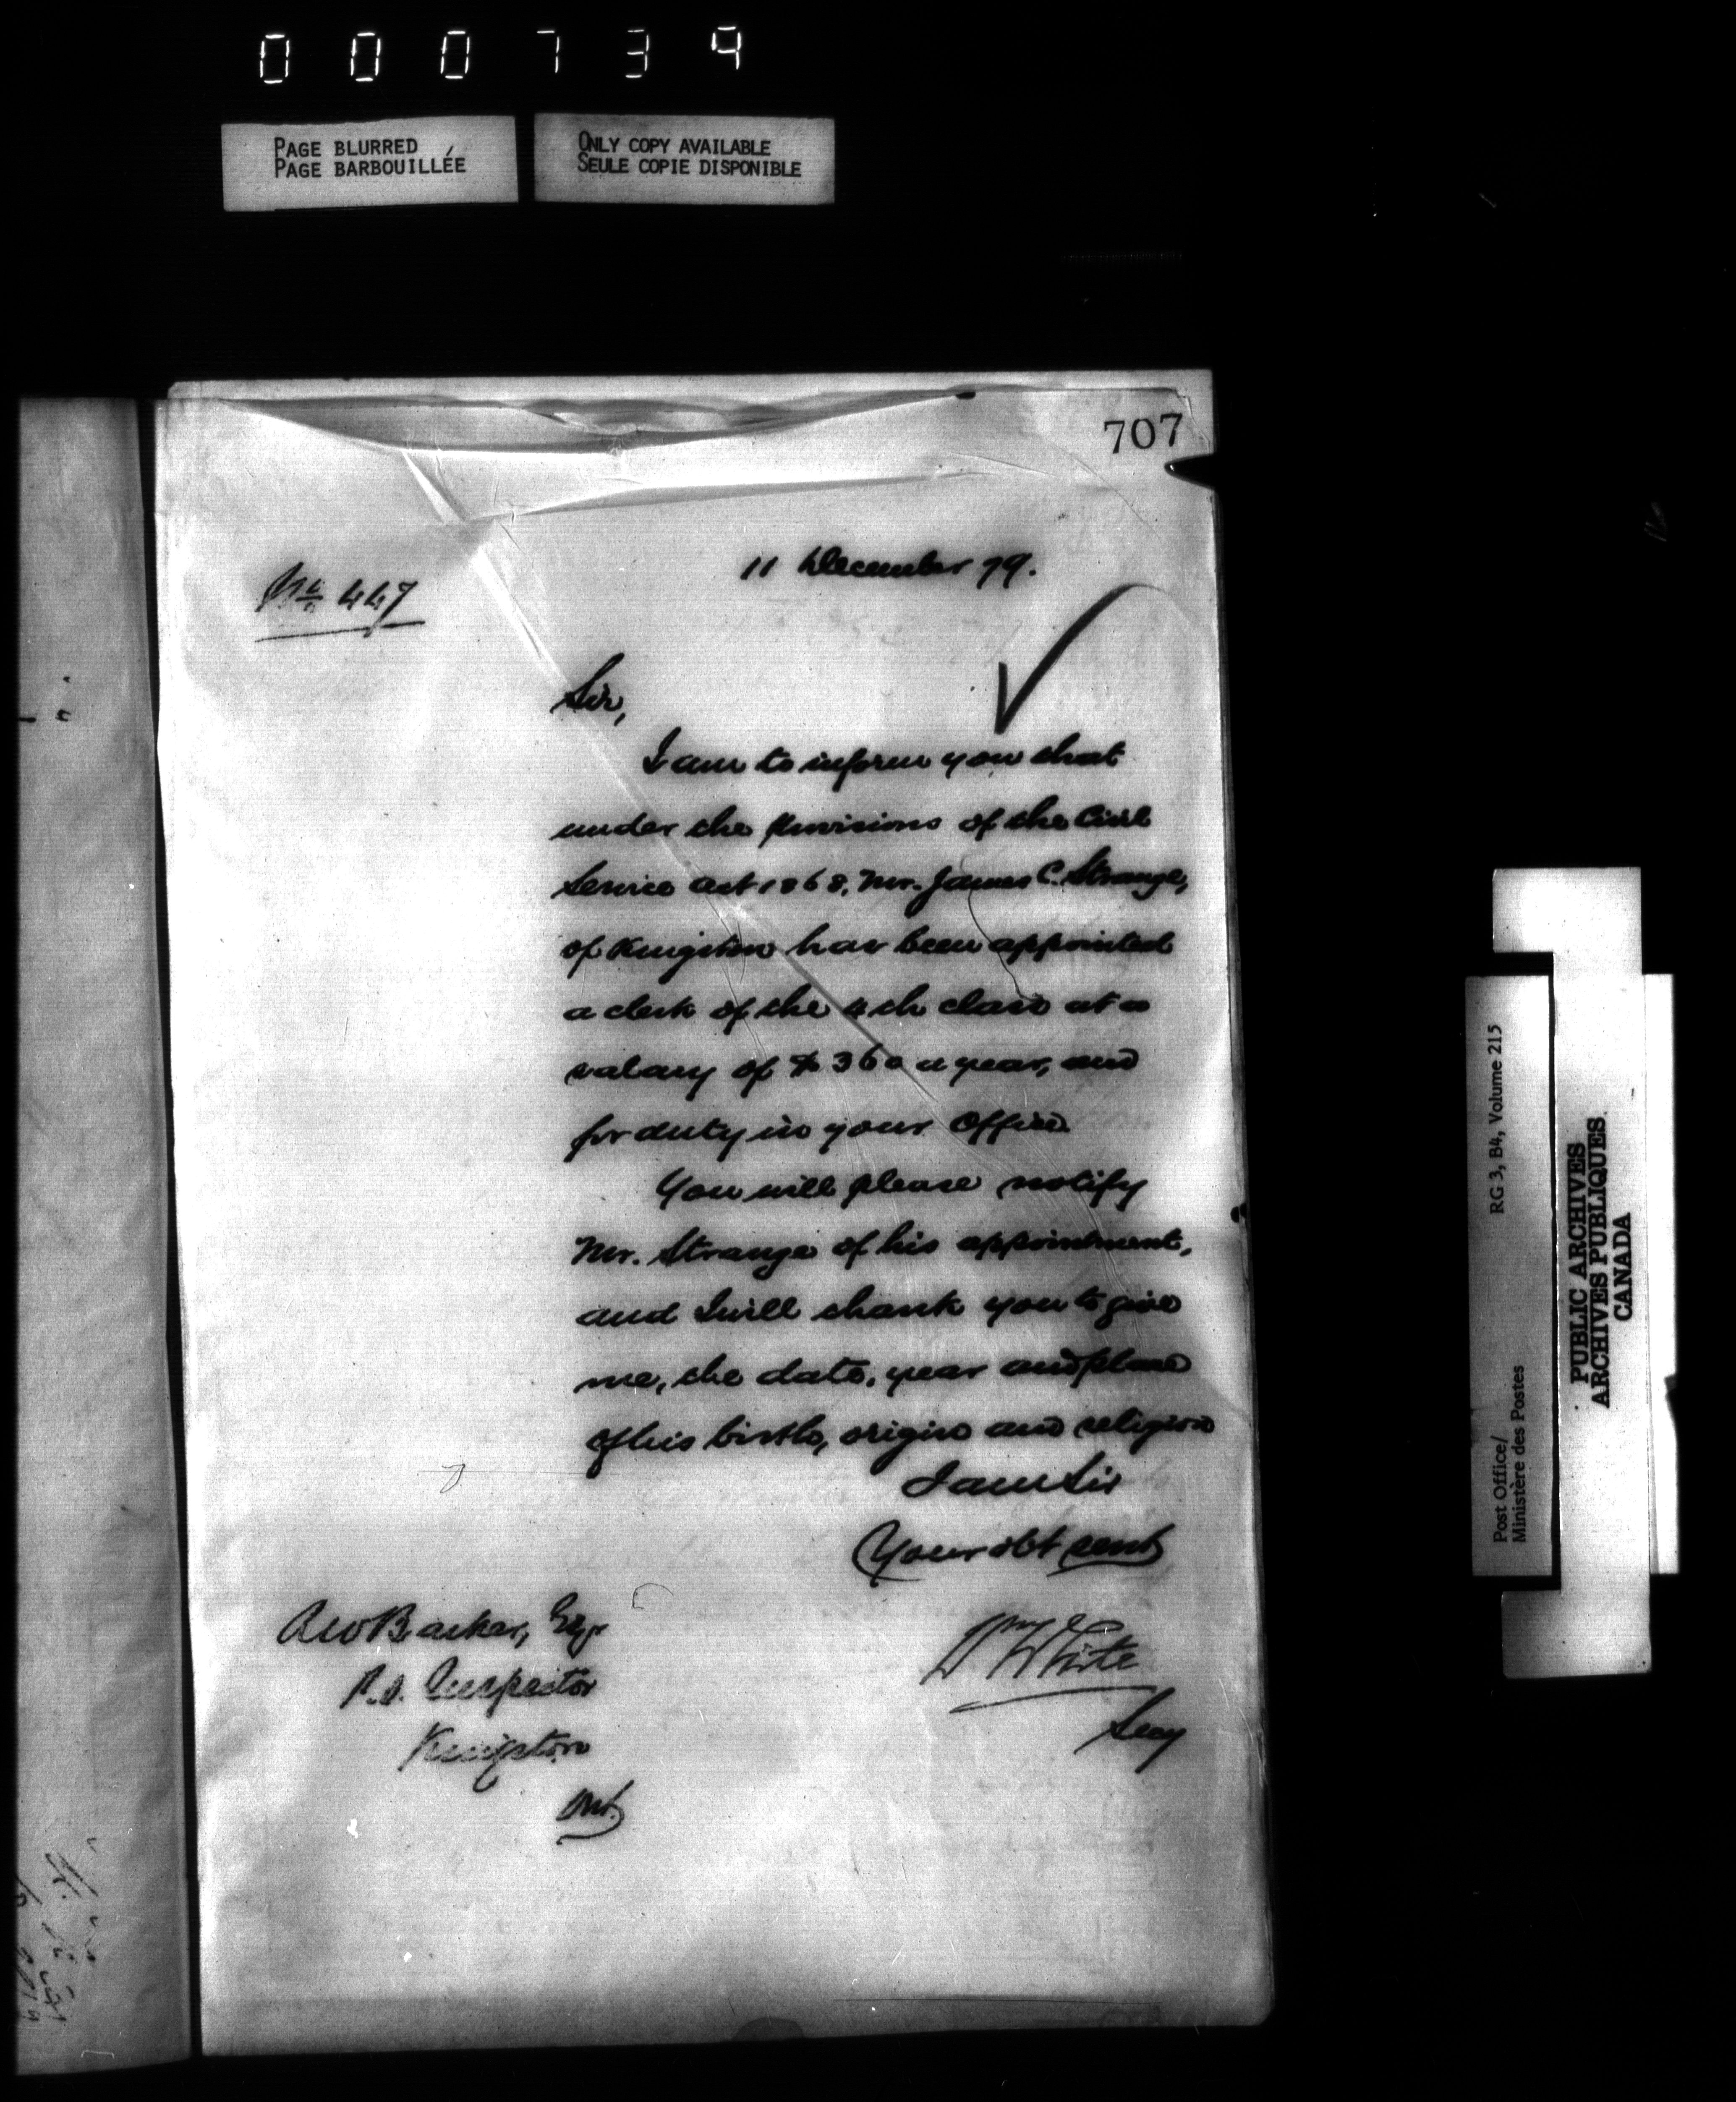 000739
PAGE BLURRED
PAGE BARBOUILLÉE
ONLY COPY AVAILABLE
SEULE COPIE DISPONIBLE
707
11 December 79.
No. 447
Sir,
I am to inform you that
under the provisions of the Civil
Service Act 1868, Mr. James C. Strange,
of Kingston has been appointed
a clerk of the 4th class at a
salary of $360 a year, and
for duty in your Office.
You will please notify
Mr. Strange of his appointment,
and I will thank you to give
me, the date, year and place
of his birth, origin and religion
I am Sir
Your obt servt
Wm White
Secy
R W Barker, Esqr
P.O. Inspector
Kingston
Ont.
RG 3, B4, Volume 215
Post Office/
Ministère des Postes
PUBLIC ARCHIVES
ARCHIVES PUBLIQUES
CANADA